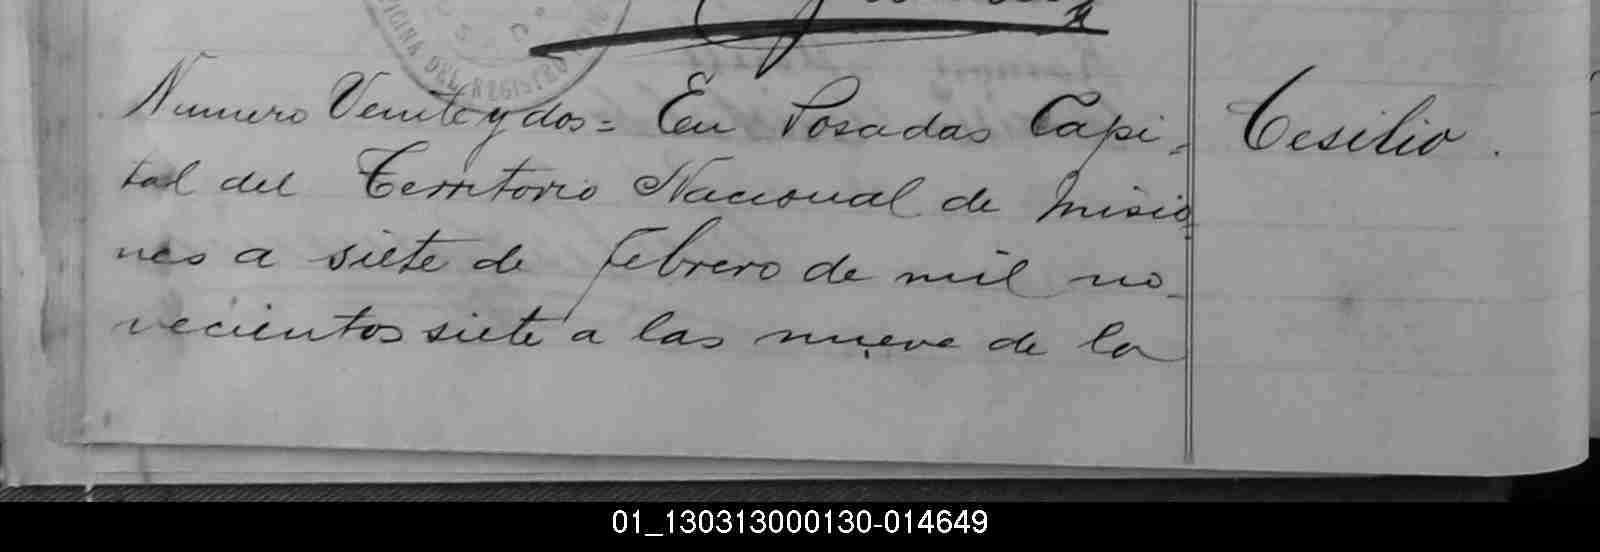 OFICINA DEL REGISTRO
Numero Veinte y dos = En Posadas Capi-
tal del Territorio Nacional de Misio
nes a siete de febrero de mil no-
vecientos siete a las nueve de la
Cesilio.
01_130313000130-014649